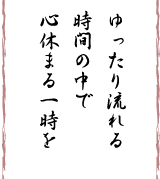 ゆったり流れる
時間の中で
心休まる一時を